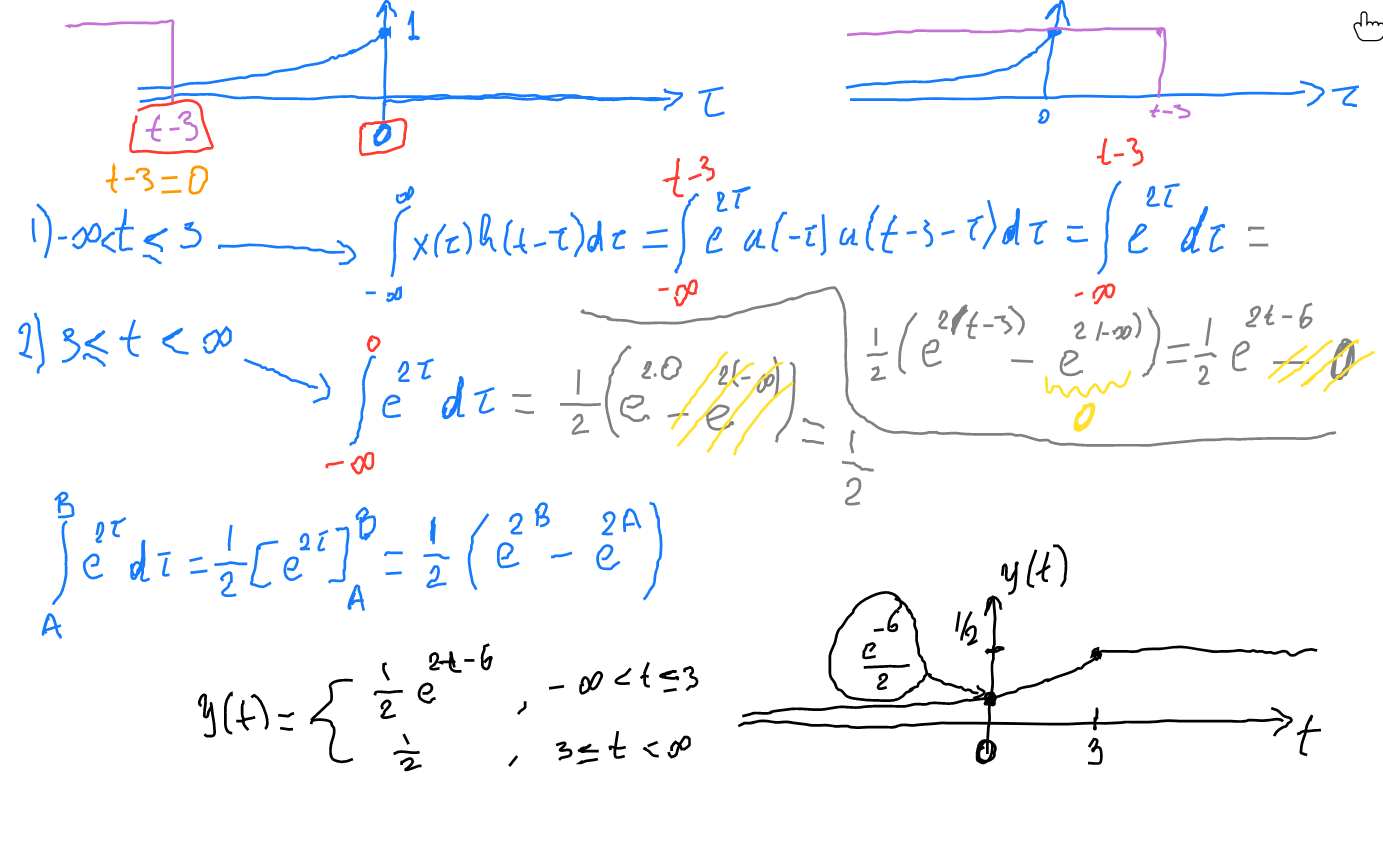 1
τ
τ
t-3
0
0
t-3
t-3=0
1) -∞<t≤3 → ∫_{-∞}^{∞} x(τ)h(t-τ)dτ = ∫_{-∞}^{t-3} e^{2τ} u(-τ) u(t-3-τ)dτ = ∫_{-∞}^{t-3} e^{2τ} dτ =
1/2 (e^{2(t-3)} - e^{2(-∞)}) = 1/2 e^{2t-6} - 0
0
2) 3≤t<∞ → ∫_{-∞}^{0} e^{2τ} dτ = 1/2 (e^{2.0} - e^{2(-∞)}) = 1/2
∫_{A}^{B} e^{2τ} dτ = 1/2 [e^{2τ}]_{A}^{B} = 1/2 (e^{2B} - e^{2A})
y(t) = { 1/2 e^{2t-6} , -∞<t≤3
1/2 , 3≤t<∞
y(t)
1/2
e^{-6}/2
t
0
3